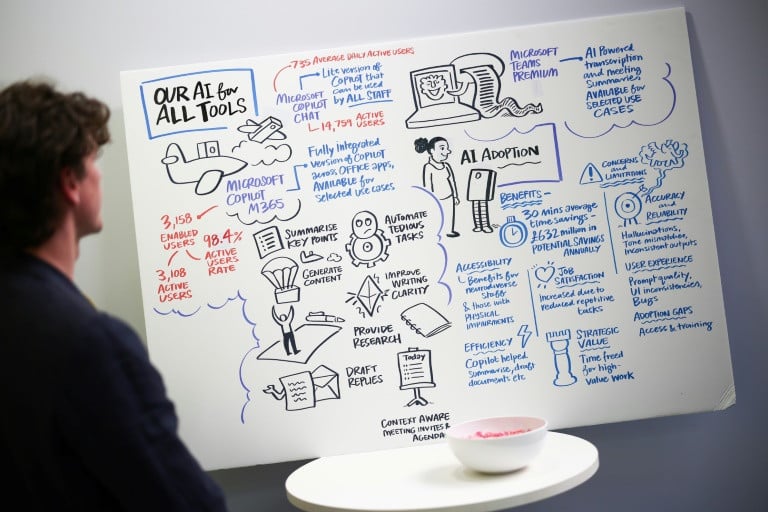 OUR AI for
ALL TOOLS
735 AVERAGE DAILY ACTIVE USERS
MICROSOFT
COPILOT
CHAT
Lite version of
Copilot that
can be used
by ALL STAFF
14,759 ACTIVE
USERS
MICROSOFT
COPILOT
M365
Fully integrated
version of COPILOT
across OFFICE apps,
AVAILABLE for
selected use cases
3,158
ENABLED
USERS
98.4%
ACTIVE
USERS
RATE
3,108
ACTIVE
USERS
SUMMARISE
KEY POINTS
AUTOMATE
TEDIOUS
TASKS
GENERATE
CONTENT
IMPROVE
WRITING
CLARITY
PROVIDE
RESEARCH
DRAFT
REPLIES
Today
CONTEXT AWARE
MEETING INVITES &
AGENDA
MICROSOFT
TEAMS
PREMIUM
AI POWERED
transcription
and meeting
Summaries,
AVAILABLE for
SELECTED USE
CASES
AI ADOPTION
BENEFITS
30 mins average
time savings -
£632 million in
POTENTIAL SAVINGS
ANNUALLY
ACCESSIBILITY
Benefits for
neurodiverse
staff
& those with
PHYSICAL
IMPAIRMENTS
JOB
SATISFACTION
Increased due to
reduced repetitive
tasks
EFFICIENCY
Copilot helped
summarise, draft
documents etc
STRATEGIC
VALUE
Time freed
for high-
value work
CONCERNS
and
LIMITATIONS
ACCURACY
and
RELIABILITY
Hallucinations,
Tone mismatches,
inconsistent outputs
USER EXPERIENCE
Prompt quality,
UI inconsistencies,
Bugs
ADOPTION GAPS
Access & training